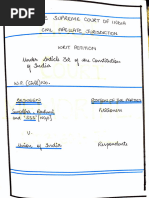 SUPREME COURT OF INDIA
CIVIL APPELLATE JURISDICTION
WRIT PETITION
Under Article 32 of the Constitution
of India
W.P. (Civil) No.
BETWEEN
POSITION OF THE PARTIES
Petitioners
V.
Union of India
Respondents